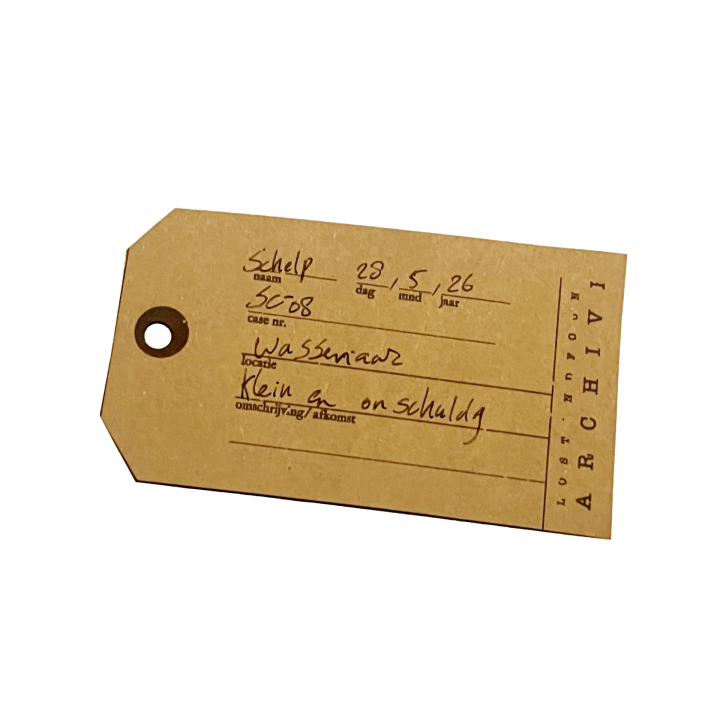 Schelp 28, 5, 26
naam dag mnd jaar
SC-08
case nr.
Wassenaar
locatie
Klein en onschuldg
omschrijving/afkomst
LOST·NFOUN
ARCHIVI